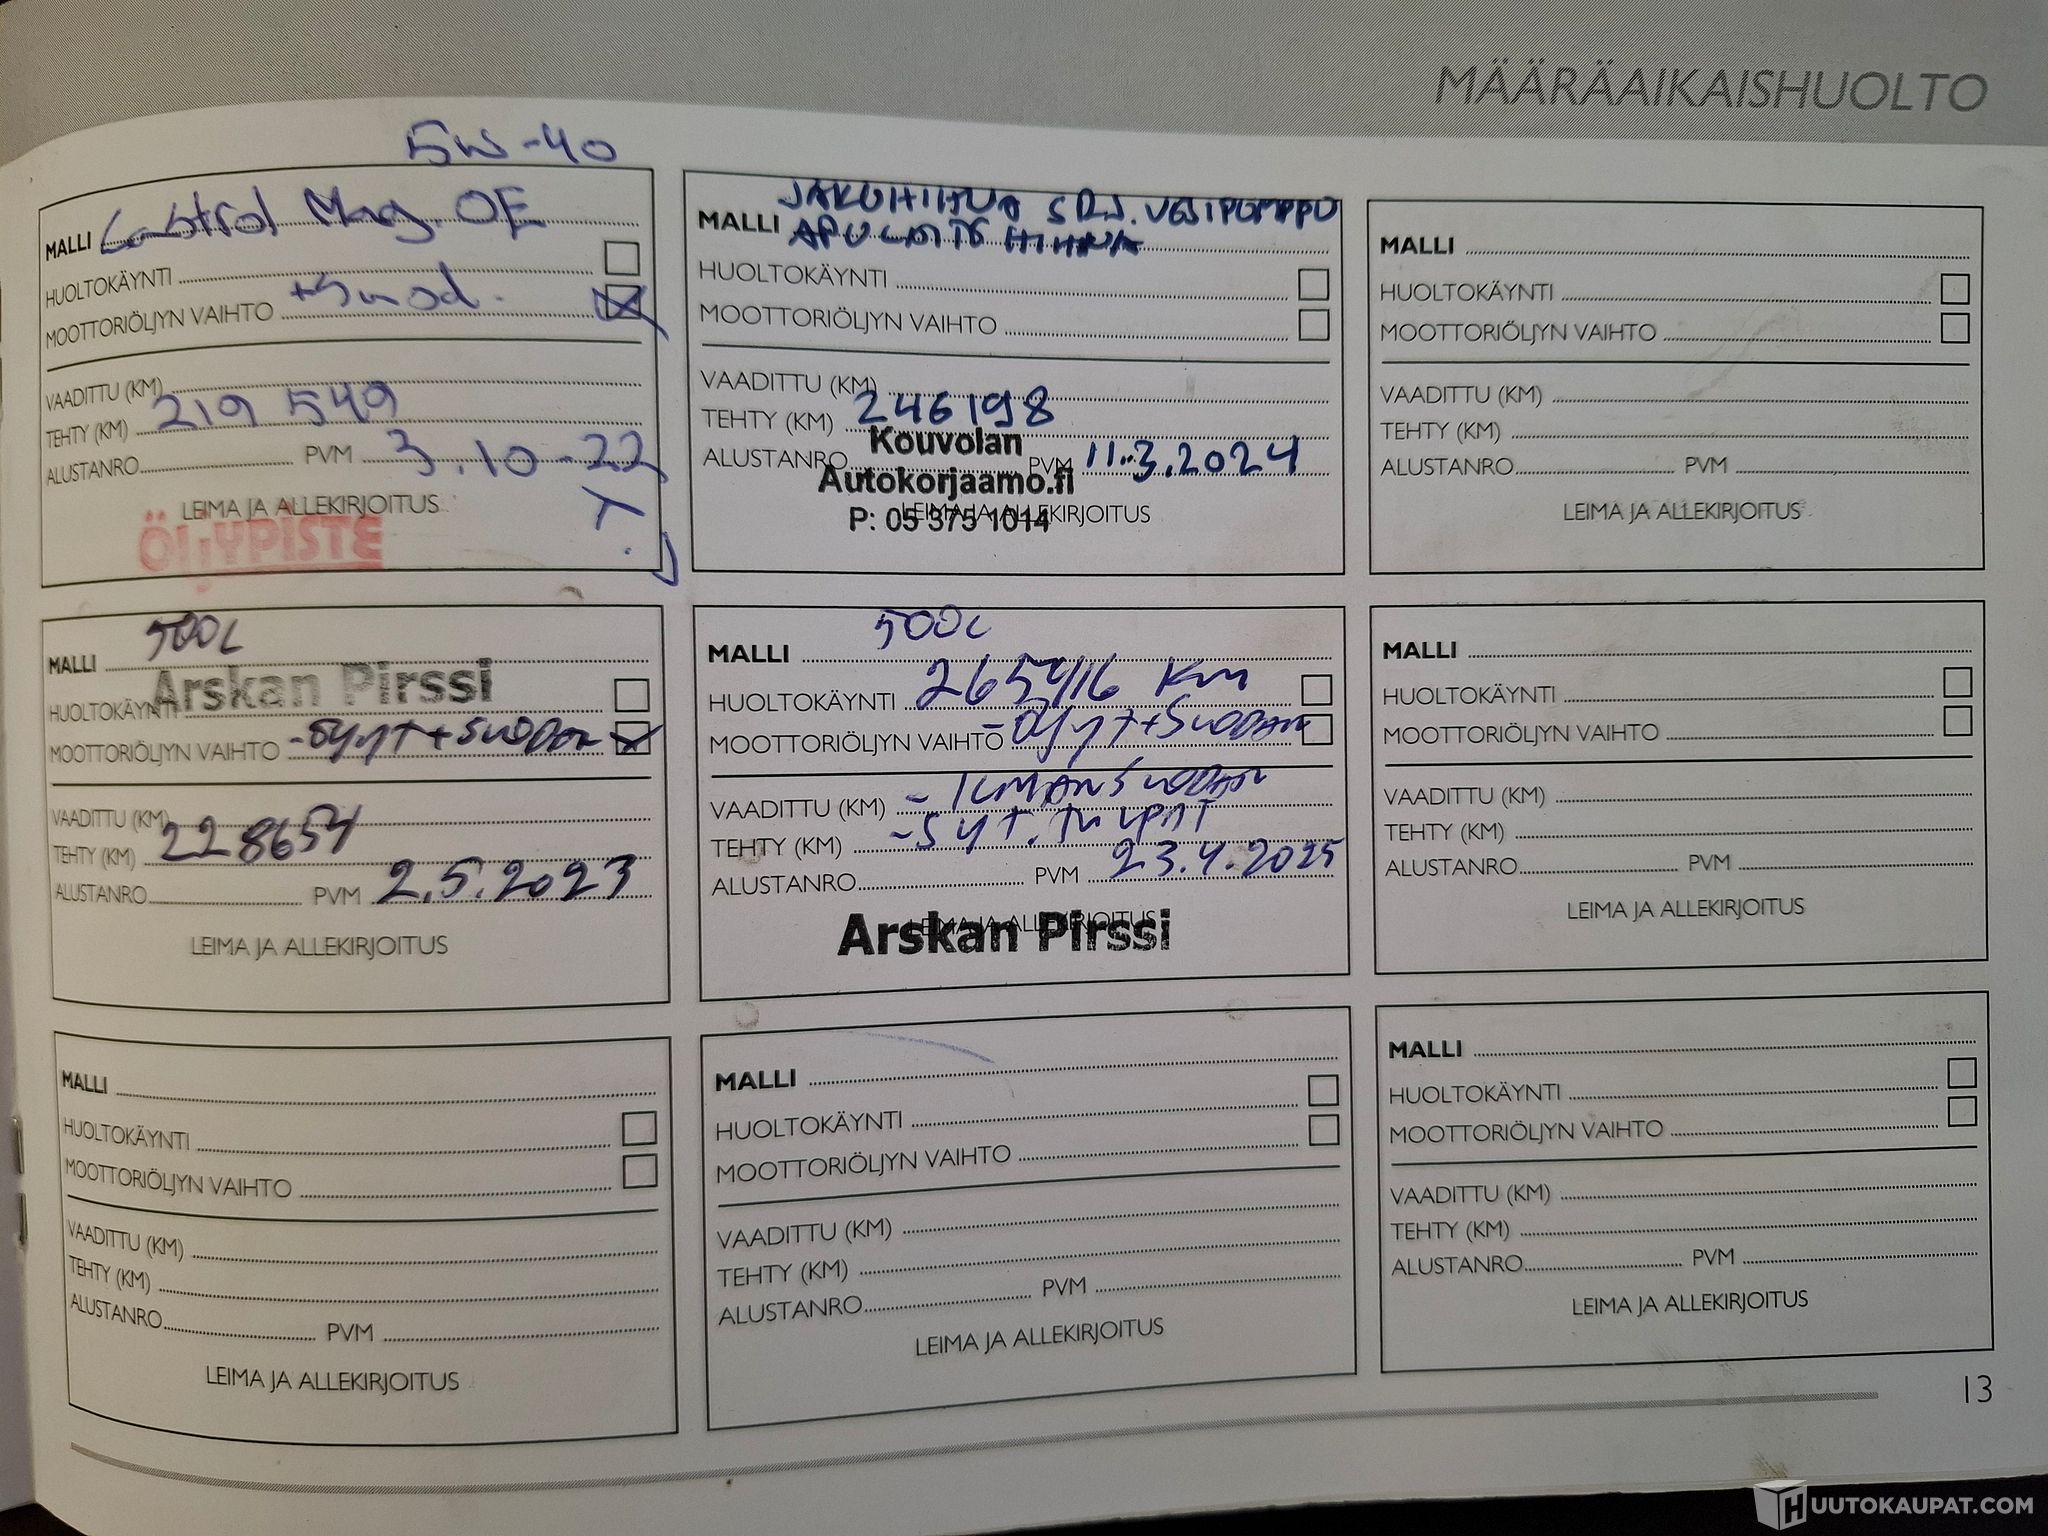 MÄÄRÄAIKAISHUOLTO
5W-40
MALLI Castrol Mag. OE
HUOLTOKÄYNTI
MOOTTORIÖLJYN VAIHTO +Suod.
VAADITTU (KM)
TEHTY (KM) 219 549
ALUSTANRO PVM 3.10-22
LEIMA JA ALLEKIRJOITUS
ÖLJYPISTE
T.J
JAKOHIHNA SRJ. VESIPUMPPU
MALLI APULAITE HIHNA
HUOLTOKÄYNTI
MOOTTORIÖLJYN VAIHTO
VAADITTU (KM)
TEHTY (KM) 246198
ALUSTANRO PVM 11.3.2024
Kouvolan
Autokorjaamo.fi
LEIMA JA ALLEKIRJOITUS
P: 05 375 1014
MALLI
HUOLTOKÄYNTI
MOOTTORIÖLJYN VAIHTO
VAADITTU (KM)
TEHTY (KM)
ALUSTANRO PVM
LEIMA JA ALLEKIRJOITUS
MALLI 500L
Arskan Pirssi
HUOLTOKÄYNTI
MOOTTORIÖLJYN VAIHTO -Öljyt+Suodan
VAADITTU (KM)
TEHTY (KM) 228654
ALUSTANRO PVM 2.5.2023
LEIMA JA ALLEKIRJOITUS
MALLI 500L
HUOLTOKÄYNTI 265416 KM
MOOTTORIÖLJYN VAIHTO -Öljyt+Suodan
VAADITTU (KM) -ILMANSUODAN
TEHTY (KM) -Syt.tulpat
ALUSTANRO PVM 23.4.2025
LEIMA JA ALLEKIRJOITUS
Arskan Pirssi
MALLI
HUOLTOKÄYNTI
MOOTTORIÖLJYN VAIHTO
VAADITTU (KM)
TEHTY (KM)
ALUSTANRO PVM
LEIMA JA ALLEKIRJOITUS
MALLI
HUOLTOKÄYNTI
MOOTTORIÖLJYN VAIHTO
VAADITTU (KM)
TEHTY (KM)
ALUSTANRO PVM
LEIMA JA ALLEKIRJOITUS
MALLI
HUOLTOKÄYNTI
MOOTTORIÖLJYN VAIHTO
VAADITTU (KM)
TEHTY (KM)
ALUSTANRO PVM
LEIMA JA ALLEKIRJOITUS
MALLI
HUOLTOKÄYNTI
MOOTTORIÖLJYN VAIHTO
VAADITTU (KM)
TEHTY (KM)
ALUSTANRO PVM
LEIMA JA ALLEKIRJOITUS
13
HUUTOKAUPAT.COM